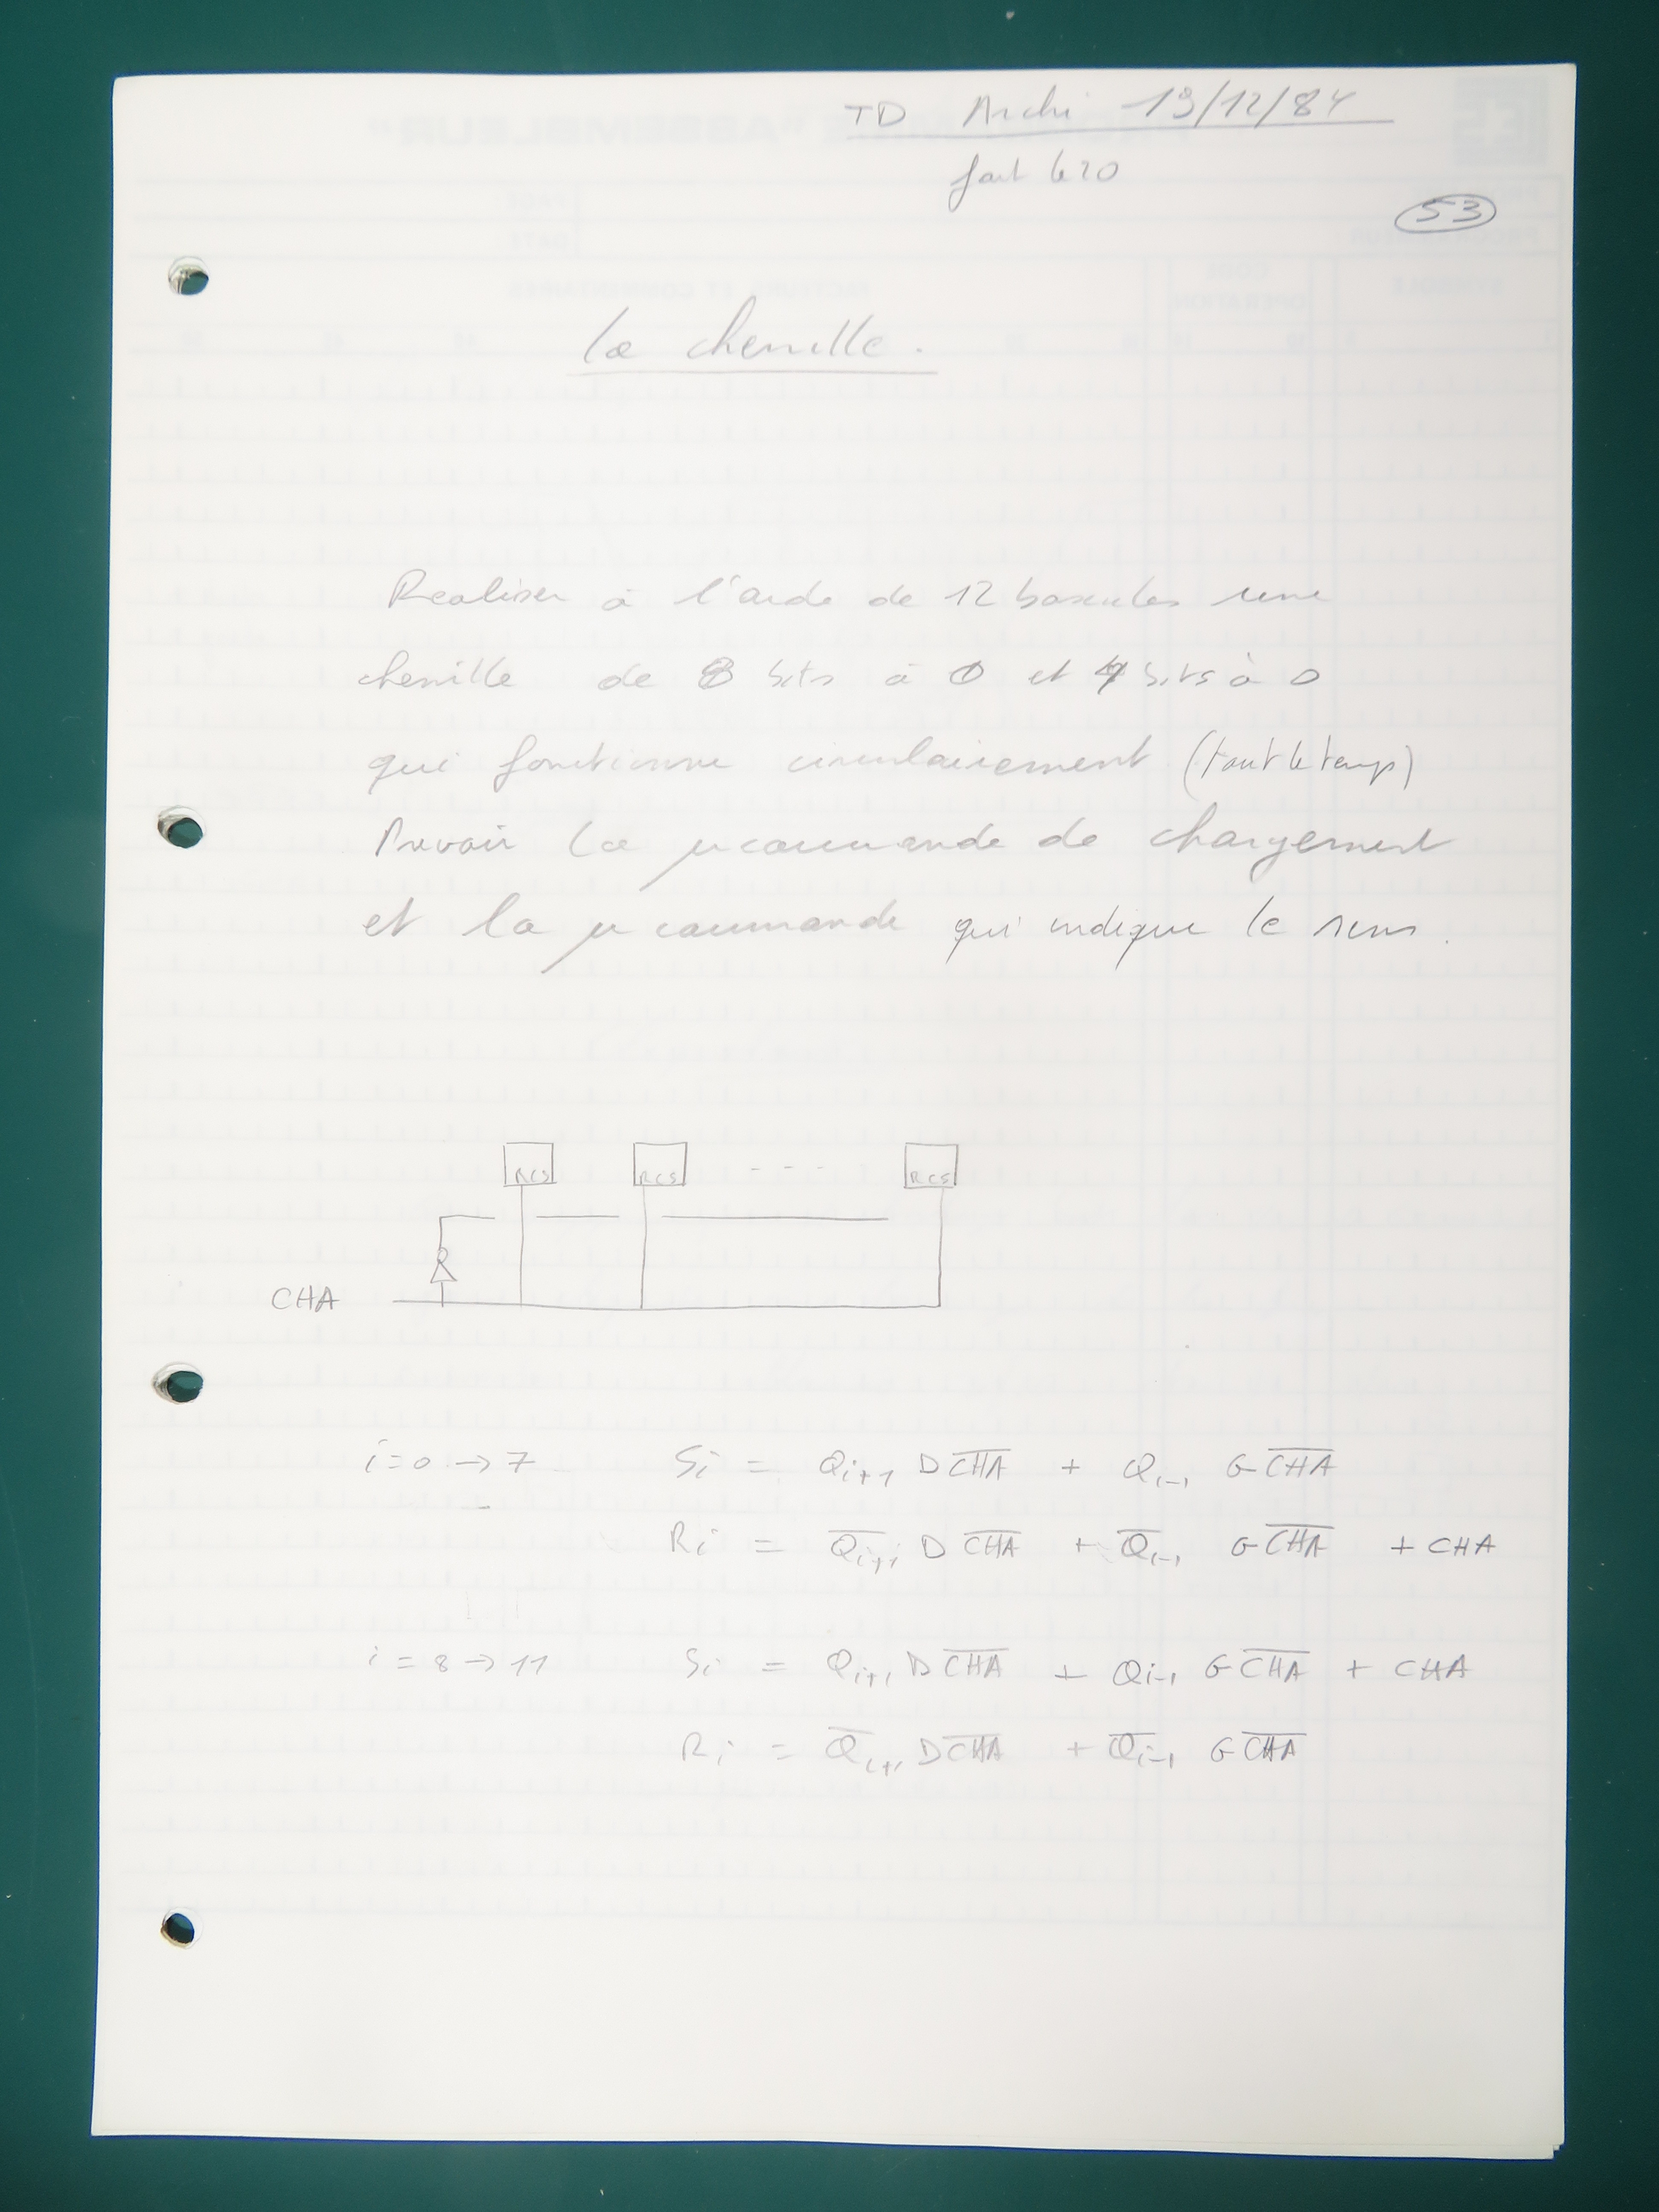 TD Archi 13/12/84
fait le 20
53
La chenille.
Realiser à l'aide de 12 bascules une
chenille de 8 bits à 0 et 4 bits à 0
qui fonctionne circulairement (tout le temps)
Prevoir la µcommande de chargement
et la µcommande qui indique le sens.
RCS RCS - - - RCS
CHA
i=0 → 7 Si = Qi+1 D C̅H̅A̅ + Qi-1 G C̅H̅A̅
Ri = Q̅i+1 D C̅H̅A̅ + Q̅i-1 G C̅H̅A̅ + CHA
i = 8 → 11 Si = Qi+1 D C̅H̅A̅ + Qi-1 G C̅H̅A̅ + CHA
Ri = Q̅i+1 D C̅H̅A̅ + Q̅i-1 G C̅H̅A̅